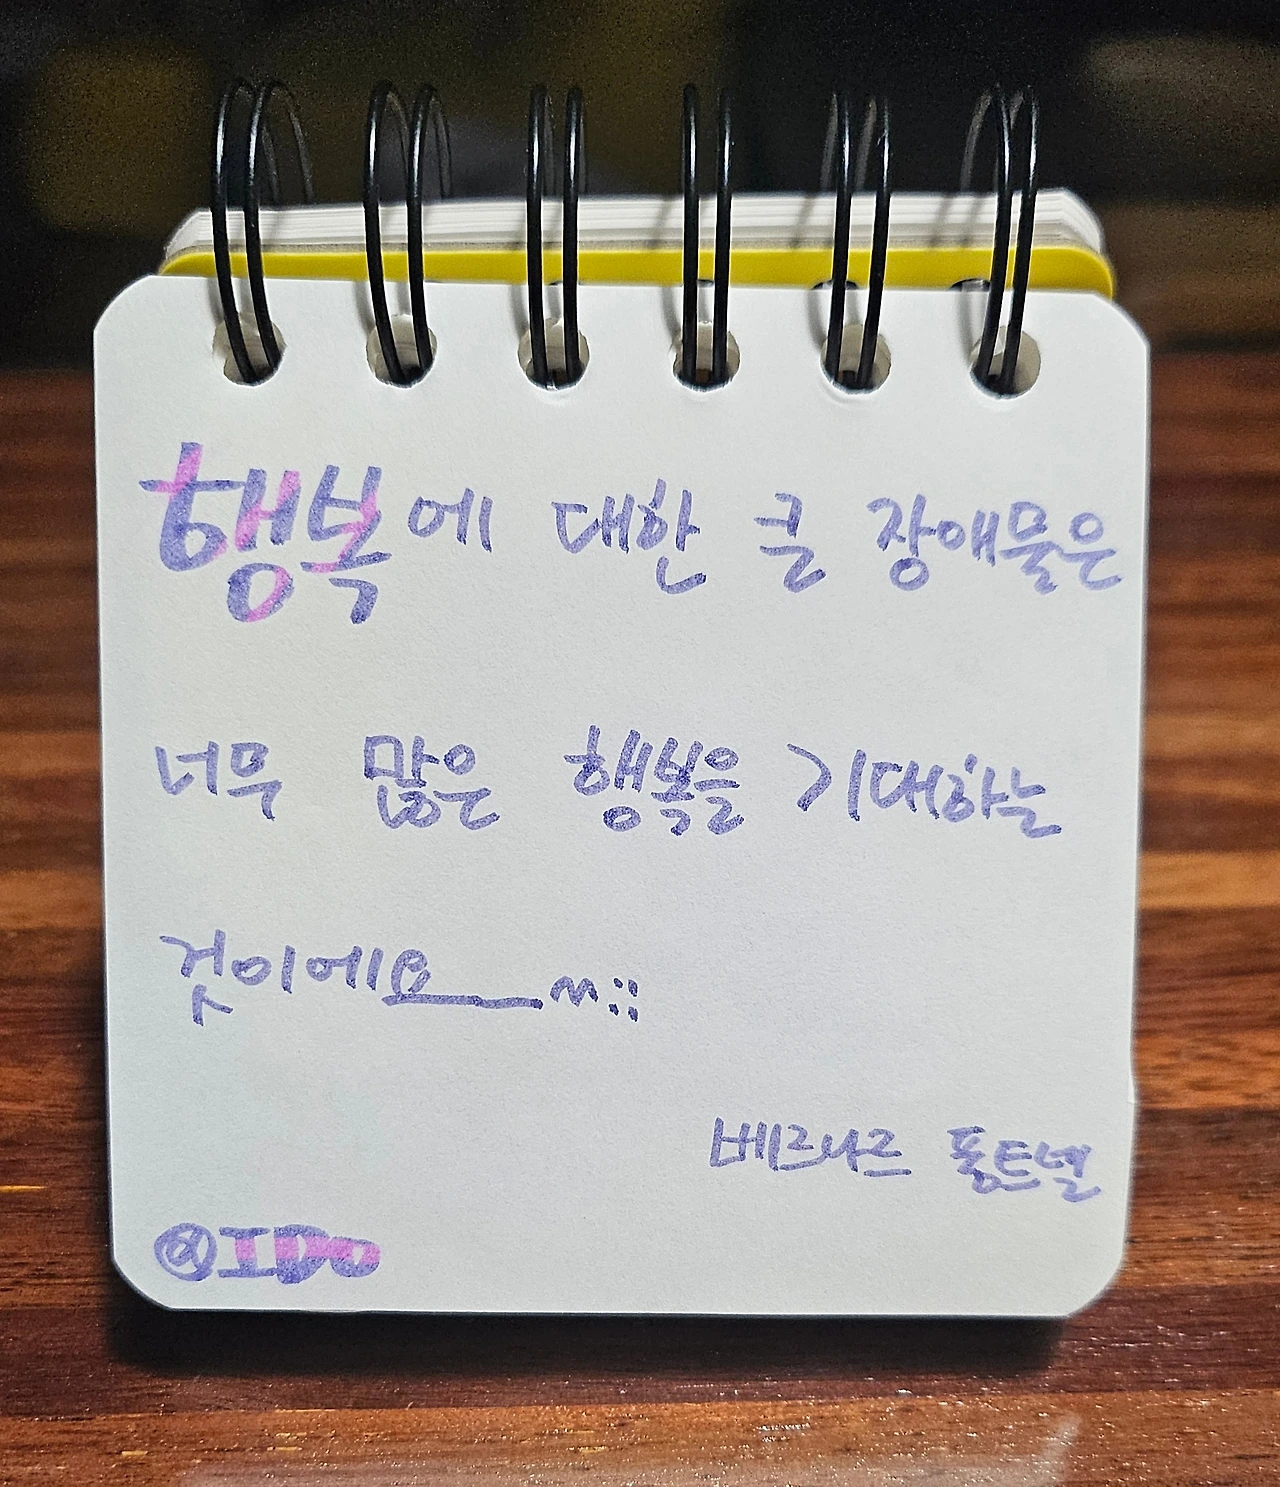 행복에 대한 큰 장애물은
너무 많은 행복을 기대하는
것이에요
베르나르 퐁트넬
@IDo